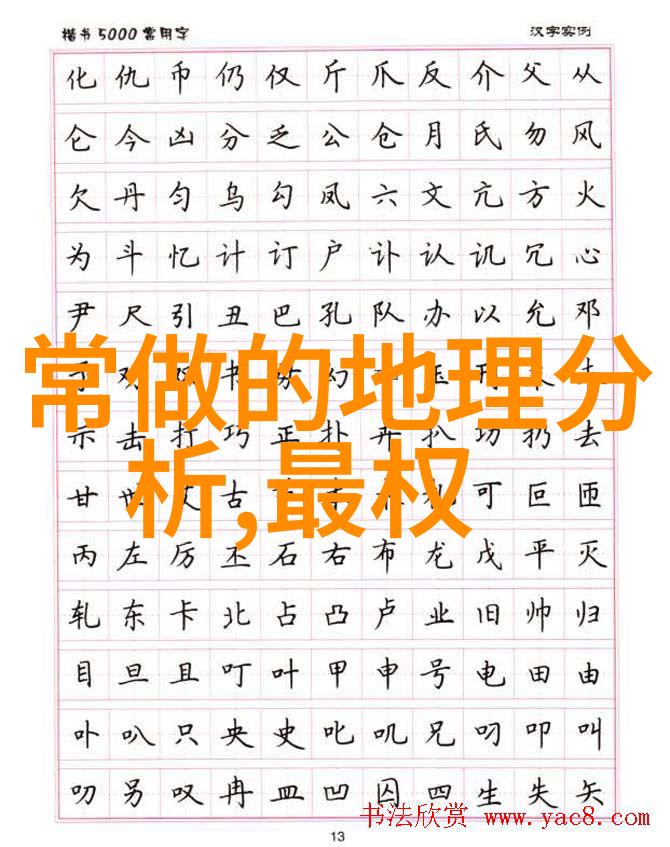 楷书5000常用字 汉字实例
化仇币仍仅斤爪反介父从
仑今凶分乏公仓月氏勿风
欠丹匀乌勾凤六文亢方火
为斗忆计订户讣认讥冗心
尹尺引丑巴孔队办以允邓
常做的地理分
示击打巧正扑卉扒功扔去
析,最权
甘 古 可叵匝
丙左厉丕石右布龙戊平灭
轧东卡北占凸卢业旧帅归
目旦且叮叶甲申号电田由
卟叭只央史叱叽兄叼叩叫
叨另叹冉皿凹囚四生失矢
13
书法欣赏 www.yac8.com